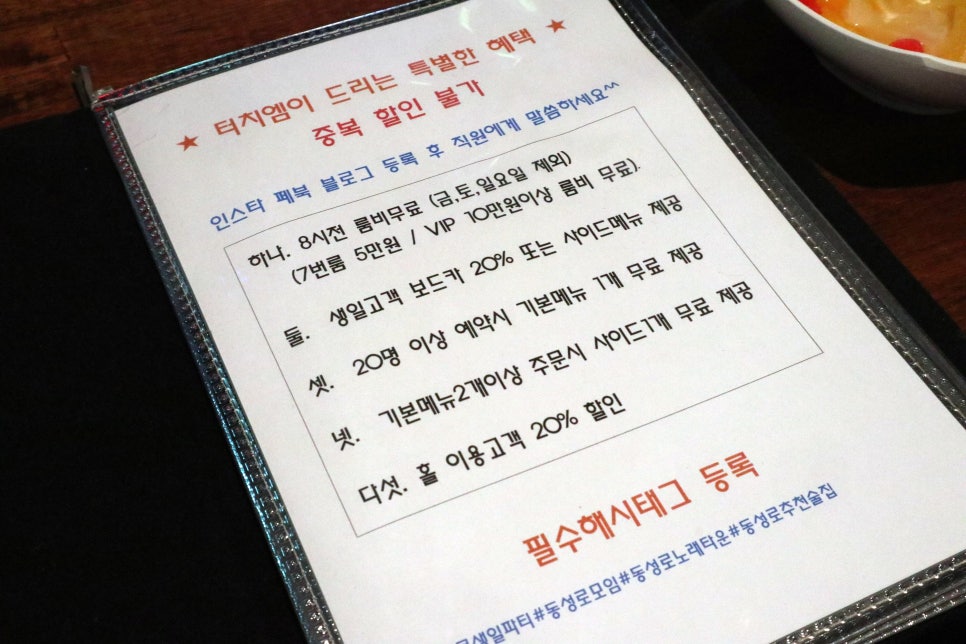 ★ 터치엠이 드리는 특별한 혜택 ★
중복 할인 불가
인스타 페북 블로그 등록 후 직원에게 말씀하세요^^
하나. 8시전 룸비무료 (금,토,일요일 제외)
(7번룸 5만원 / VIP 10만원이상 룸비 무료).
둘. 생일고객 보드카 20% 또는 사이드메뉴 제공
셋. 20명 이상 예약시 기본메뉴 1개 무료 제공
넷. 기본메뉴2개이상 주문시 사이드1개 무료 제공
다섯. 홀 이용고객 20% 할인
필수해시태그 등록
생일파티#동성로모임#동성로노래타운#동성로추천술집